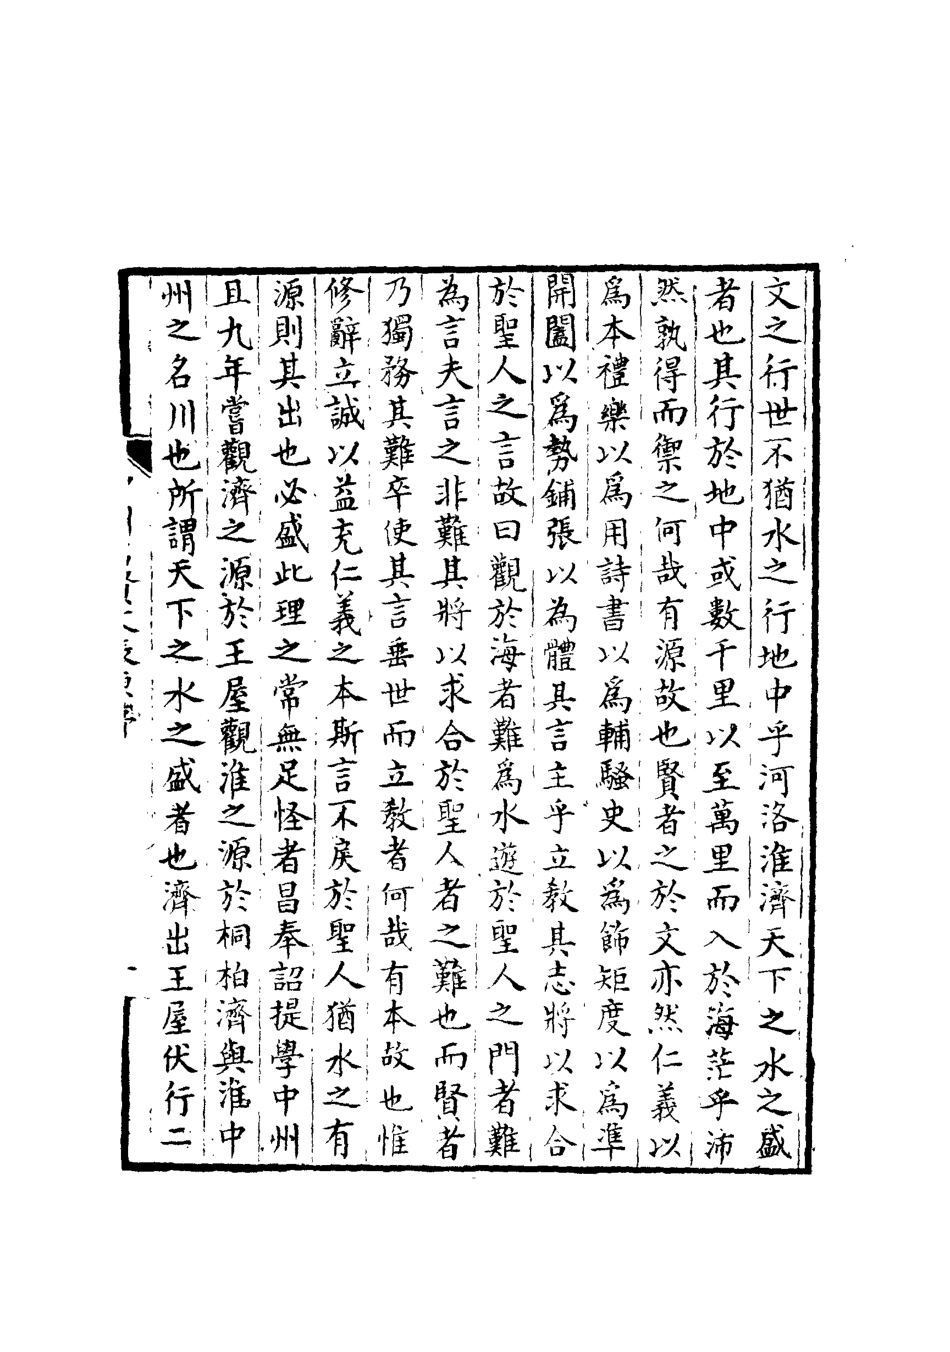 文之行世不猶水之行地中乎河洛淮濟天下之水之盛
者也其行於地中或數千里以至萬里而入於海茫乎沛
然孰得而禦之何哉有源故也賢者之於文亦然仁義以
爲本禮樂以爲用詩書以爲輔騷史以爲飾矩度以爲準
開闔以爲勢鋪張以為體其言主乎立教其志將以求合
於聖人之言故曰觀於海者難爲水遊於聖人之門者難
為言夫言之非難其將以求合於聖人者之難也而賢者
乃獨務其難卒使其言垂世而立教者何哉有本故也惟
修辭立誠以益充仁義之本斯言不戾於聖人猶水之有
源則其出也必盛此理之常無足怪者昌奉詔提學中州
且九年嘗觀濟之源於王屋觀淮之源於桐柏濟與淮中
州之名川也所謂天下之水之盛者也濟出王屋伏行二